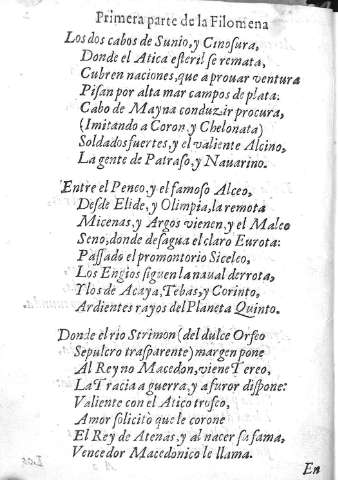 Primera parte de la Filomena
Los dos cabos de Sunio, y Cinosura,
Donde el Atica esteril se remata,
Cubren naciones, que a prouar ventura
Pisan por alta mar campos de plata:
Cabo de Mayna conduzir procura,
(Imitando a Coron, y Chelonata)
Soldados fuertes, y el valiente Alcino,
La gente de Patraso, y Nauarino.
Entre el Peneo, y el famoso Alceo,
Desde Elide, y Olimpia, la remota
Micenas, y Argos vienen, y el Maleo
Seno, donde desagua el claro Eurota:
Passado el promontorio Siceleo,
Los Engios siguen la naual derrota,
Y los de Acaya, Tebas, y Corinto,
Ardientes rayos del Planeta Quinto.
Donde el rio Strimon (del dulce Orfeo
Sepulcro trasparente) margen pone
Al Reyno Macedon, viene Tereo,
La Tracia a guerra, y a furor dispone:
Valiente con el Atico trofeo,
Amor solicitò que le corone
El Rey de Atenas, y al nacer su fama,
Vencedor Macedonico le llama.
En